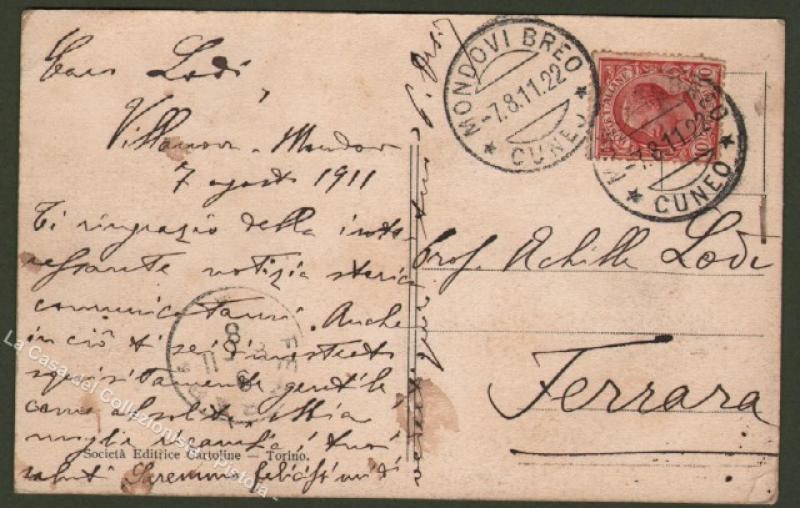 Caro Lodi,
Villanova - Mondovì
7 agosto 1911
Ti ringrazio della inte
ressante notizia storica
comunicatami. Anche
in ciò ti sei dimostrato
squisitamente gentile
come al solito. Mia
moglie ricambia i tuoi
saluti Saremmo felicissimi di
Società Editrice Cartoline - Torino.
MONDOVI BREO
-7.8.11.22
* CUNEO *
-7.8.11.22
* CUNEO *
Prof. Achille Lodi
Ferrara
La Casa del Collezionista - Pistoia